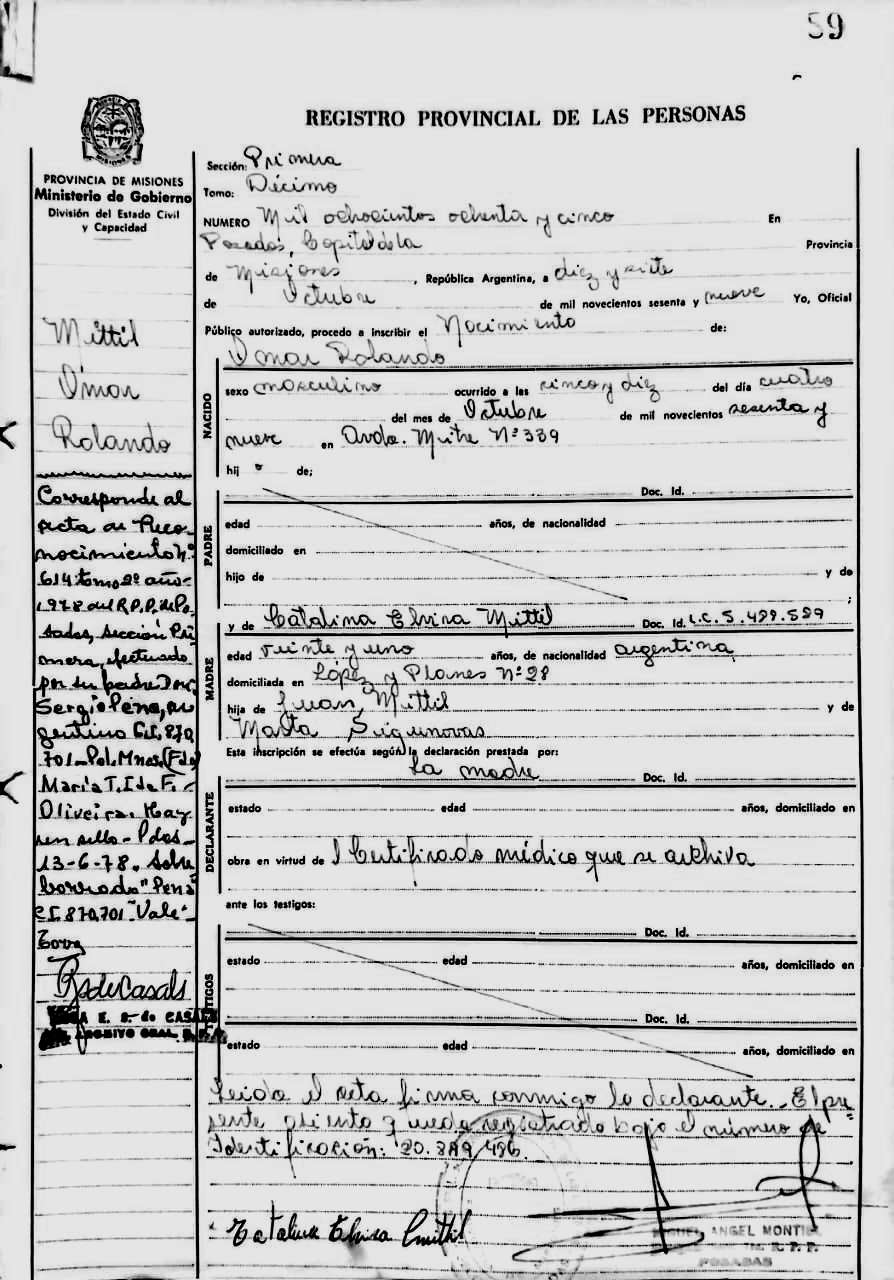 59
REGISTRO PROVINCIAL DE LAS PERSONAS
PROVINCIA DE MISIONES
Ministerio de Gobierno
División del Estado Civil
y Capacidad
Mittil
Omar
Rolando
Corresponde al
acta de Reco-
nocimiento Nº
614 tomo 2º año-
1978 del R.P.P. de Po-
sadas, sección Pri
mera, efectuado
por su padre Don
Sergio Pena, ar
gentino C.I. 870
701-Pol. Mnes. (Fdo)
María T. I de F.-
Oliveira. Hay
un sello- Pdas-
13-6-78. Sobre
borrado "Pena
C.I. 870,701" Vale-
RsdeCasals
E. S. de CASALS
ARCHIVO GRAL.
Sección: Primera
Tomo: Décimo
NUMERO Mil ochocientos ochenta y cinco En
Posadas, Capital de la Provincia
de Misiones, República Argentina, a diez y siete
de Octubre de mil novecientos sesenta y nueve Yo, Oficial
Público autorizado, procedo a inscribir el Nacimiento de:
Omar Rolando
NACIDO
sexo masculino ocurrido a las cinco y diez del día cuatro
del mes de Octubre de mil novecientos sesenta y
nueve en Avda. Mitre Nº 339
hij o de;
PADRE
Doc. Id.
edad años, de nacionalidad
domiciliado en
hijo de y de
;
MADRE
y de Catalina Elvira Mittil Doc. Id. L.C. 5.499.589
edad veinte y uno años, de nacionalidad argentina
domiciliada en López y Planes Nº 28
hija de Juan Mittil y de
Marta
Esta inscripción se efectúa según la declaración prestada por:
la madre Doc. Id.
DECLARANTE
estado edad años, domiciliado en
obra en virtud de l Certificado médico que se archiva
ante los testigos:
TESTIGOS
Doc. Id.
estado edad años, domiciliado en
Doc. Id.
estado edad años, domiciliado en
Leida el acta firma conmigo la declarante.- El pre
sente asiento queda registrado bajo el número de
Identificación: 20.889.486.
Catalina Elvira Mittil
MIGUEL ANGEL MONTIEL
R. P. P.
POSADAS